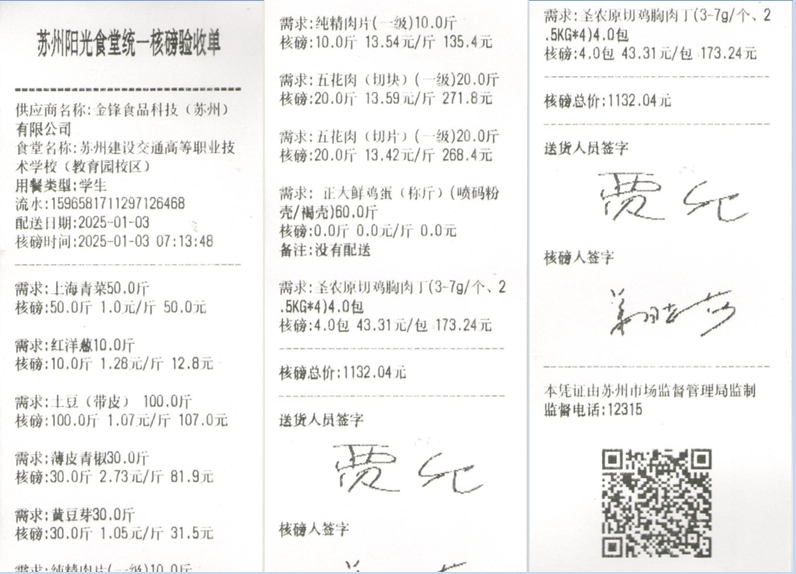 苏州阳光食堂统一核磅验收单
供应商名称:金锋食品科技(苏州)
有限公司
食堂名称:苏州建设交通高等职业技
术学校(教育园校区)
用餐类型:学生
流水:1596581711297126468
配送日期:2025-01-03
核磅时间:2025-01-03 07:13:48
需求:上海青菜50.0斤
核磅:50.0斤 1.0元/斤 50.0元
需求:红洋葱10.0斤
核磅:10.0斤 1.28元/斤 12.8元
需求:土豆(带皮) 100.0斤
核磅:100.0斤 1.07元/斤 107.0元
需求:薄皮青椒30.0斤
核磅:30.0斤 2.73元/斤 81.9元
需求:黄豆芽30.0斤
核磅:30.0斤 1.05元/斤 31.5元
需求:纯精肉片(一级)10.0斤
需求:纯精肉片(一级)10.0斤
核磅:10.0斤 13.54元/斤 135.4元
需求:五花肉(切块)(一级)20.0斤
核磅:20.0斤 13.59元/斤 271.8元
需求:五花肉(切片)(一级)20.0斤
核磅:20.0斤 13.42元/斤 268.4元
需求: 正大鲜鸡蛋(称斤)(喷码粉
壳/褐壳)60.0斤
核磅:0.0斤 0.0元/斤 0.0元
备注:没有配送
需求:圣农原切鸡胸肉丁(3-7g/个、2
.5KG*4)4.0包
核磅:4.0包 43.31元/包 173.24元
核磅总价:1132.04元
送货人员签字
贾
核磅人签字
需求:圣农原切鸡胸肉丁(3-7g/个、2
.5KG*4)4.0包
核磅:4.0包 43.31元/包 173.24元
核磅总价:1132.04元
送货人员签字
贾
核磅人签字
本凭证由苏州市场监督管理局监制
监督电话:12315